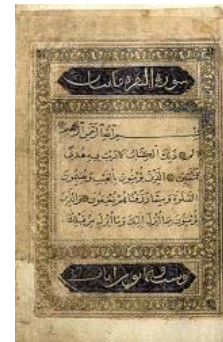 سورة البقرة مائتان
بسم الله الرحمن الرحيم
الم ذلك الكتاب لا ريب فيه هدى
للمتقين الذين يؤمنون بالغيب ويقيمون
الصلوة ومما رزقناهم ينفقون والذين
يؤمنون بما أنزل إليك وما أنزل من قبلك
وست وثمانون آيات